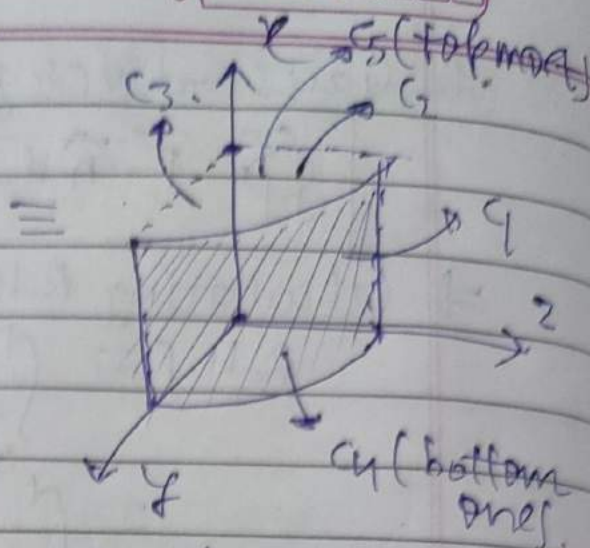 x C5 (topmost)
C3.
C2
≡
C1
z
C4 (bottom
y
ones)